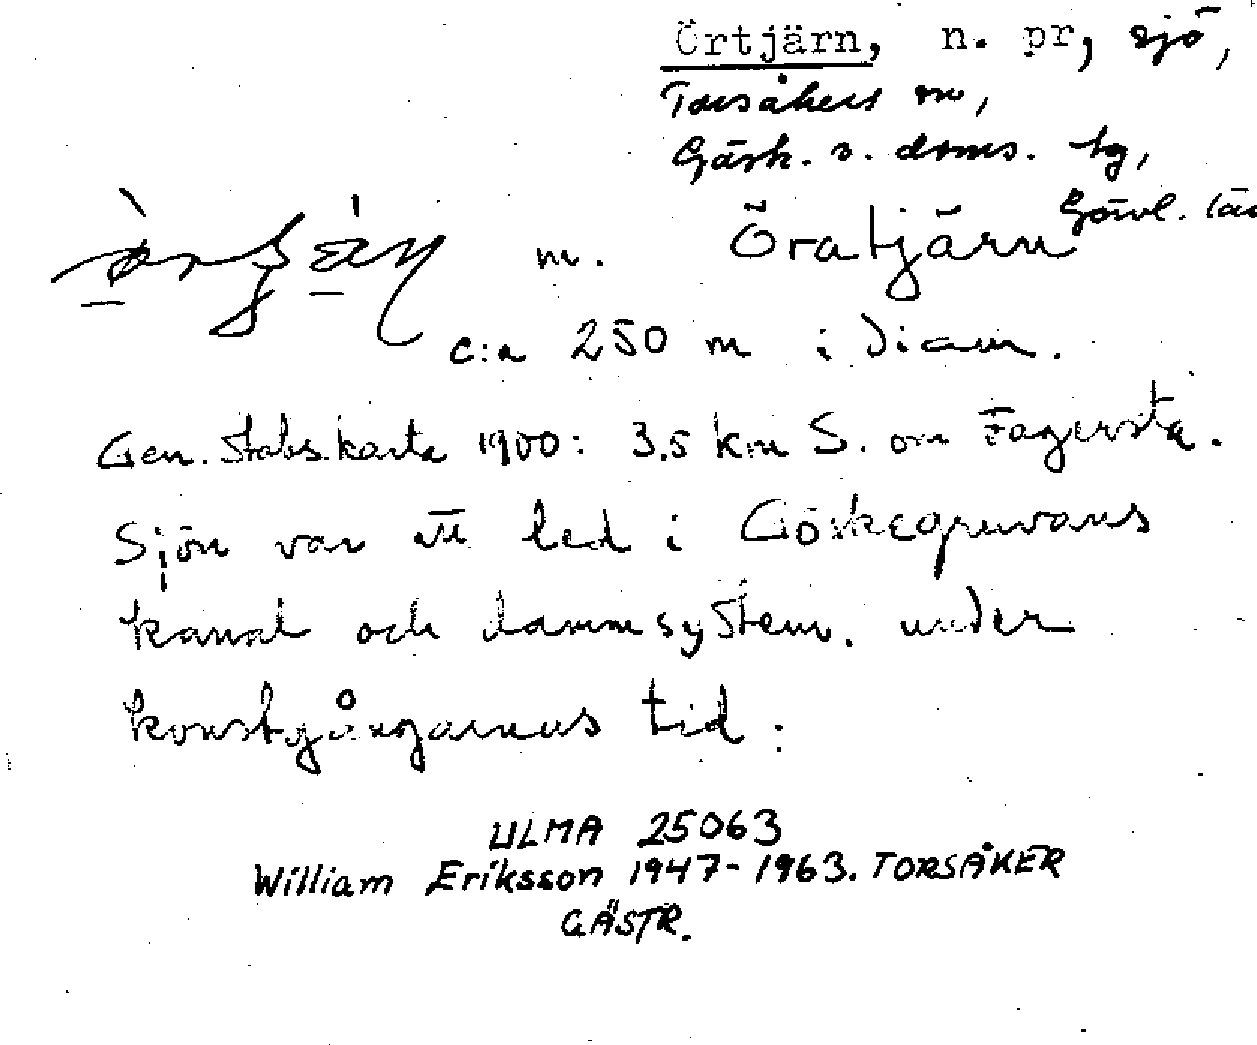 Örtjärn, n. pr, sjö,
Torsåkers sn,
Gästr. v. doms. tg,
Gävl. län
m. Öratjärn
c:a 250 m i diam.
Gen. Stabs.karta 1900: 3,5 km S. om Fagersta.
Sjön var ett led i Göskegruvans
kanal och dammsystem. under
konstgångarnas tid.
ULMA 25063
William Eriksson 1947-1963. TORSÅKER
GÄSTR.